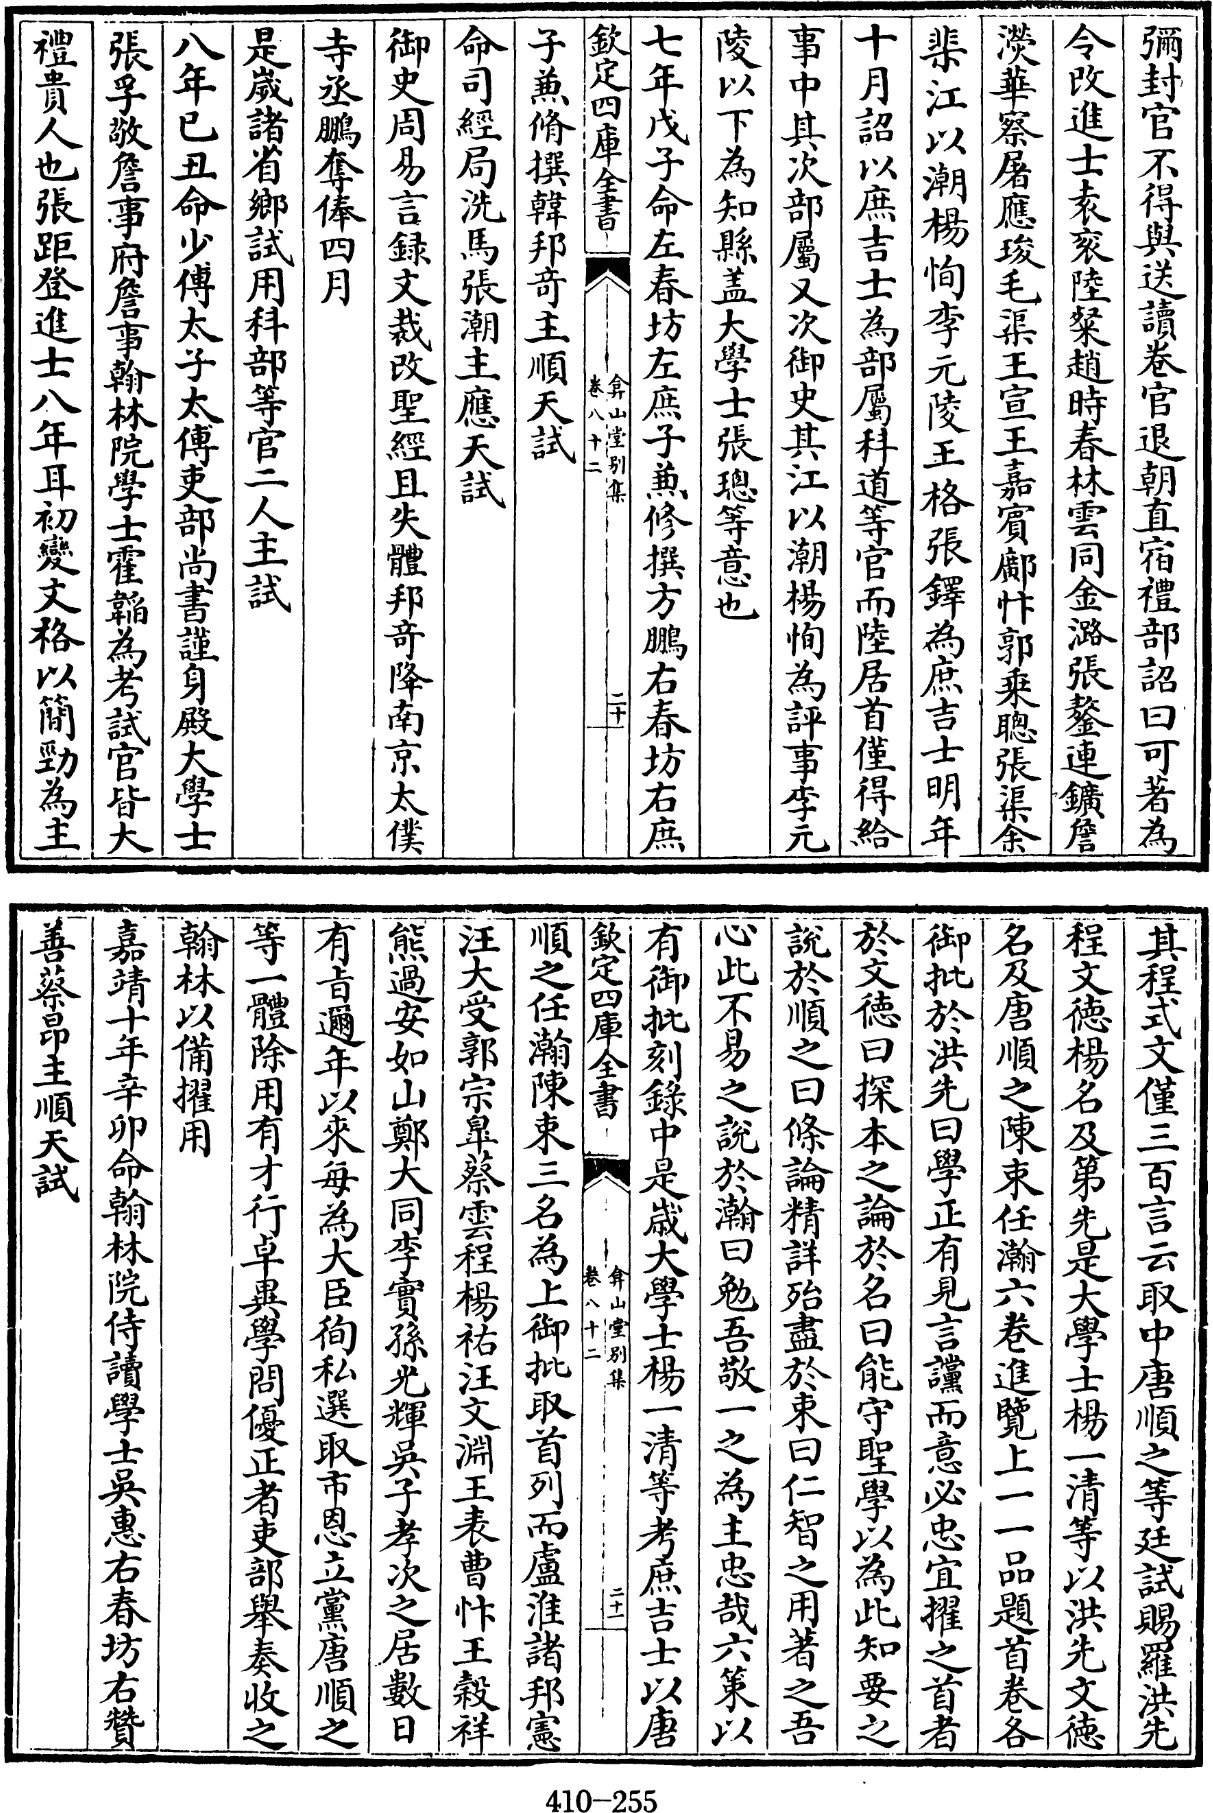 彌封官不得與送讀卷官退朝直宿禮部詔曰可著為
令改進士袁袠陸粲趙時春林雲同金潞張鏊連鑛詹
濙華察屠應埈毛渠王宣王嘉賓鄺忭郭乗聰張渠余
棐江以潮楊恂李元陵王格張鐸為庶吉士明年
十月詔以庶吉士為部屬科道等官而陸居首僅得給
事中其次部屬又次御史其江以潮楊恂為評事李元
陵以下為知縣盖大學士張璁等意也
七年戊子命左春坊左庶子兼修撰方鵬右春坊右庶
欽定四庫全書
弇山堂別集
卷八十二
二十
子兼脩撰韓邦竒主順天試
命司經局洗馬張潮主應天試
御史周易言録文裁改聖經且失體邦竒降南京太僕
寺丞鵬奪俸四月
是嵗諸省鄉試用科部等官二人主試
八年已丑命少傅太子太傅吏部尚書謹身殿大學士
張孚敬詹事府詹事翰林院學士霍韜為考試官皆大
禮貴人也張距登進士八年耳初變文格以簡勁為主
其程式文僅三百言云取中唐順之等廷試賜羅洪先
程文徳楊名及第先是大學士楊一清等以洪先文徳
名及唐順之陳束任瀚六卷進覽上一一品題首卷各
御批於洪先曰學正有見言讜而意必忠宜擢之首者
於文徳曰探本之論於名曰能守聖學以為此知要之
說於順之曰條論精詳殆盡於束曰仁智之用著之吾
心此不易之說於瀚曰勉吾敬一之為主忠哉六策以
有御批刻錄中是歳大學士楊一清等考庶吉士以唐
欽定四庫全書
弇山堂別集
卷八十二
二十一
順之任瀚陳束三名為上御批取首列而盧淮諸邦憲
汪大受郭宗臯蔡雲程楊祐汪文淵王表曹忭王穀祥
熊過安如山鄭大同李實孫光輝吳子孝次之居數日
有㫖邇年以來每為大臣徇私選取市恩立黨唐順之
等一體除用有才行卓異學問優正者吏部舉奏收之
翰林以備擢用
嘉靖十年辛卯命翰林院侍讀學士吳惠右春坊右贊
善蔡昂主順天試
410-255